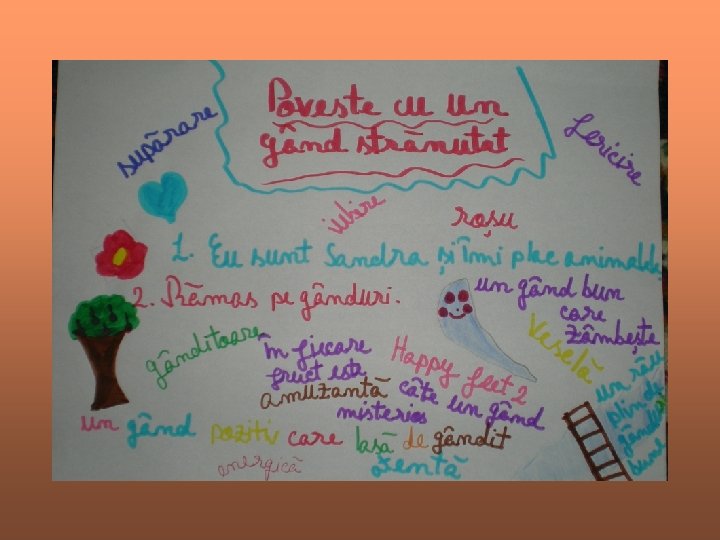 Poveste cu un
gând strănutat
supărare
fericire
iubire
roșu
1. Eu sunt Sandra și îmi plac animalele
2. Rămas pe gânduri.
un gând bun
care
zâmbește
gânditoare
Veselă
În fiecare
fruct este
amuzantă
câte un gând
misterios
Happy feet 2
un râu
plin de
gânduri
bune
un gând pozitiv care lasă de gândit
energică
atentă